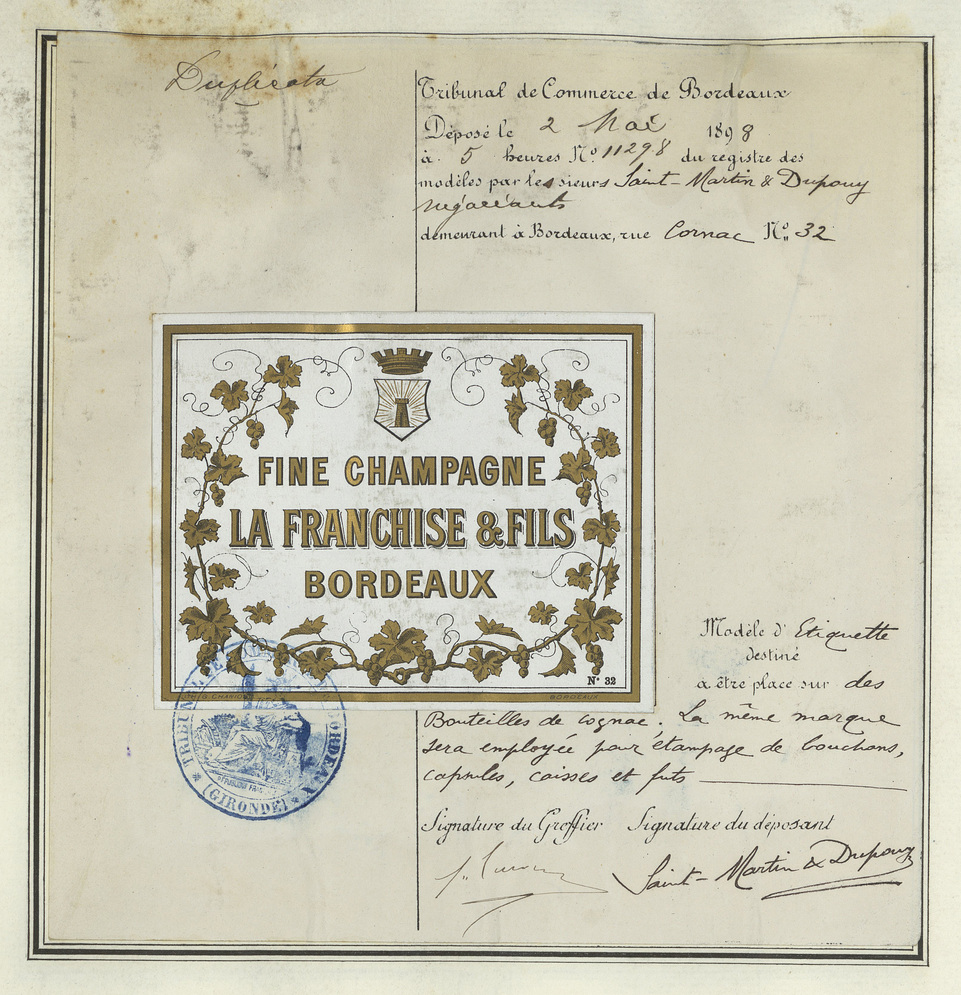 Duplicata
Tribunal de Commerce de Bordeaux
Déposé le 2 Mai 1898
à 5 heures Nº 11298 du registre des
modèles par les sieurs Saint-Martin & Dupouy
négociants
demeurant à Bordeaux, rue Cornac Nº 32
FINE CHAMPAGNE
LA FRANCHISE & FILS
BORDEAUX
Nº 32
BORDEAUX
Modèle d'Etiquette
destiné
à être place sur des
Bouteilles de cognac. La même marque
sera employée pour étampage de bouchons,
capsules, caisses et futs
TRIBUNAL DE BORDEAUX
RÉPUBLIQUE FRAN
(GIRONDE)
Signature du Greffier Signature du déposant
Saint-Martin & Dupouy